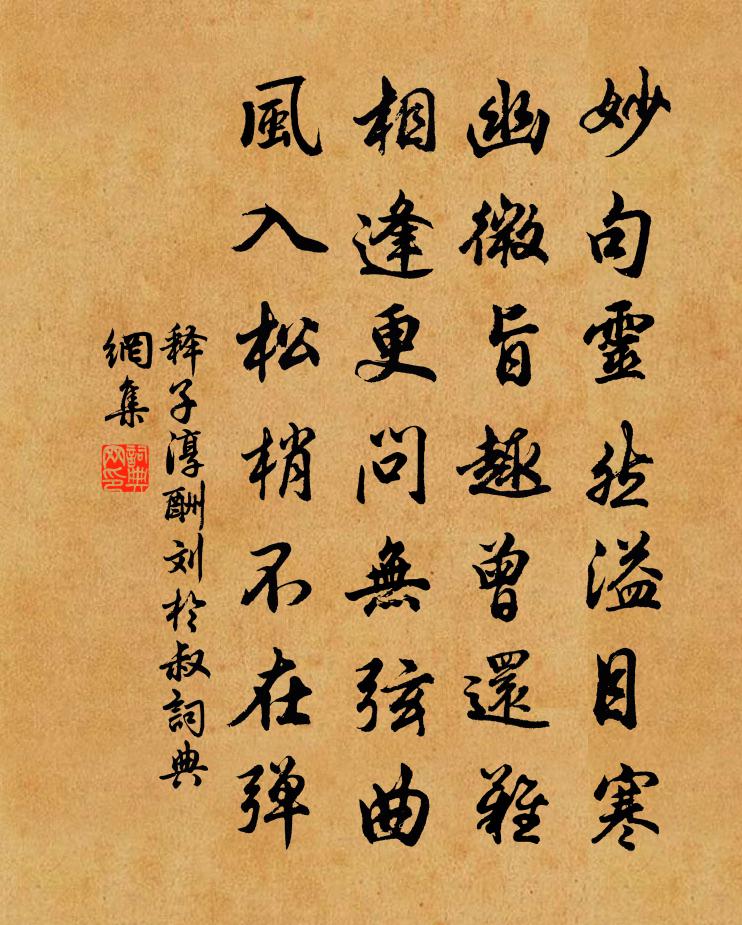 妙句靈然溢目寒
幽微旨趣曾還難
相逢更問無弦曲
風入松梢不在弹
释子淳酬刘於叔詞典
網集
詞典网印